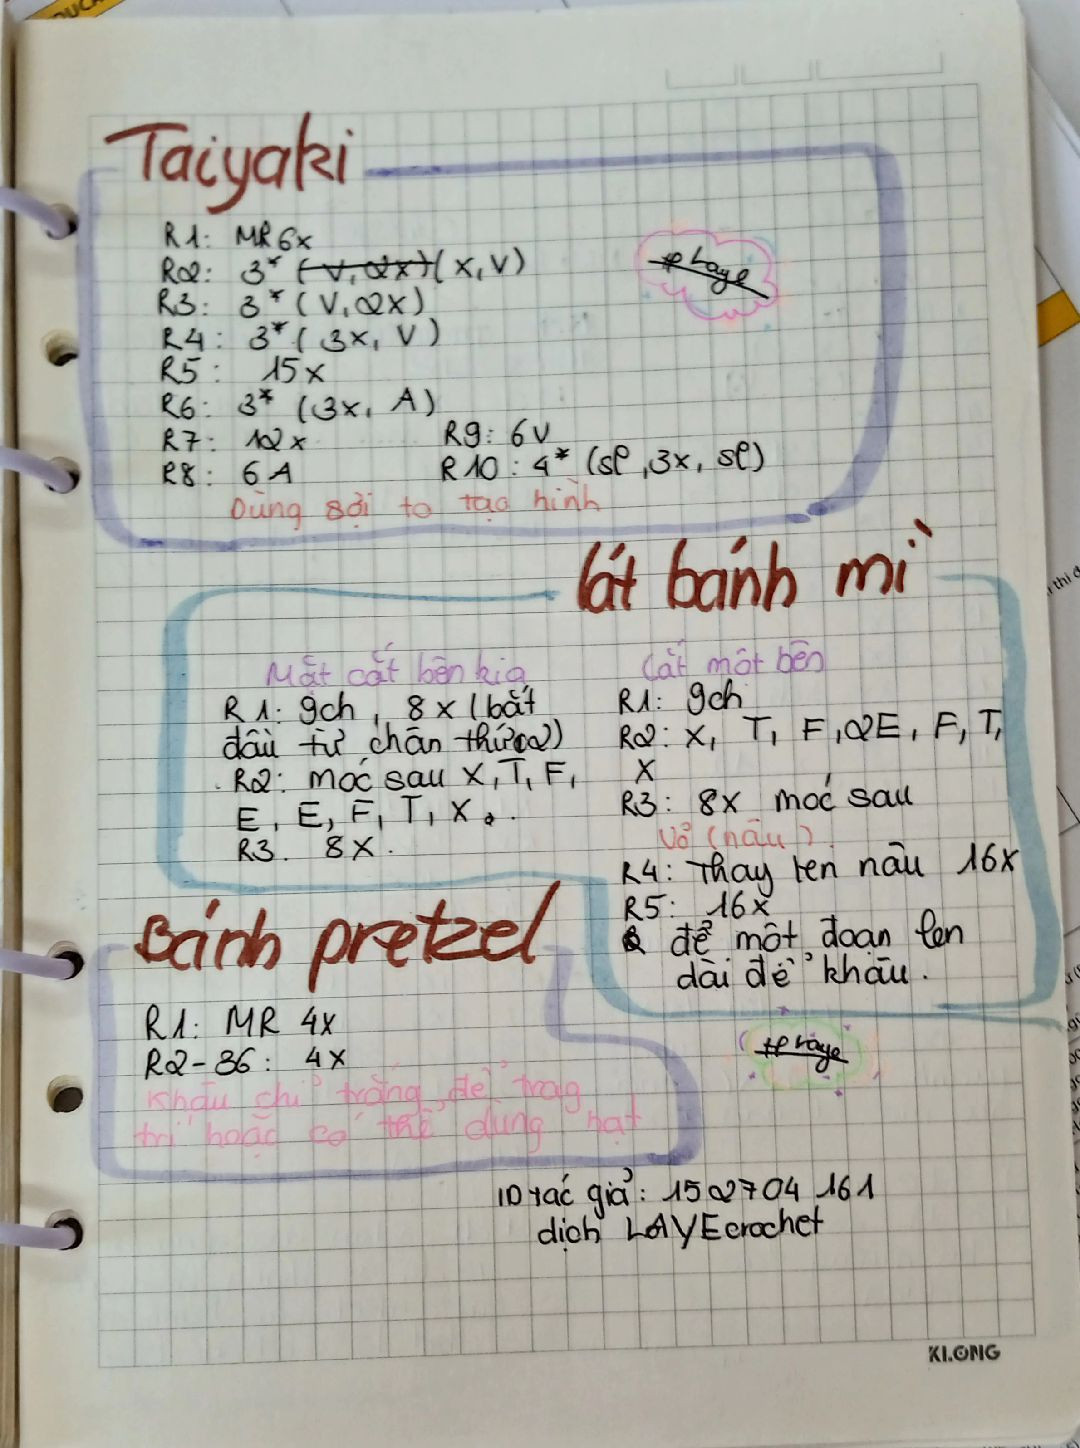 Taiyaki
R1: MR 6x
R2: 3* (V, 2x) (X, V)
R3: 3* (V, 2X)
R4: 3* (3x, V)
R5: 15x
R6: 3* (3x, A)
R7: 12x
R8: 6A
R9: 6V
R10: 4* (sl, 3x, sl)
Dùng sợi to tạo hình
lát bánh mì
Mặt cắt bên kia
R1: 9ch, 8x (bắt
đầu từ chân thứ 2)
R2: móc sau X, T, F,
E, E, F, T, X.
R3. 8X.
Cắt một bên
R1: 9ch
R2: X, T, F, 2E, F, T,
X
R3: 8X móc sau
Vỏ (nâu).
R4: Thay len nâu 16X
R5: 16X
để một đoạn len
dài để khâu.
Bánh pretzel
R1: MR 4X
R2-36: 4X
Khâu chỉ trắng để trag
trí hoặc có thể dùng hạt
ID tác giả: 1502704161
dịch LAYEcrochet
KLONG